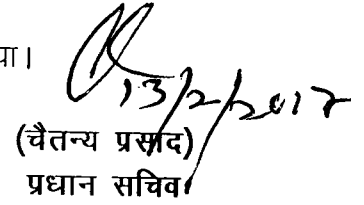 या।
13/2/2017
(चैतन्य प्रसाद)
प्रधान सचिव